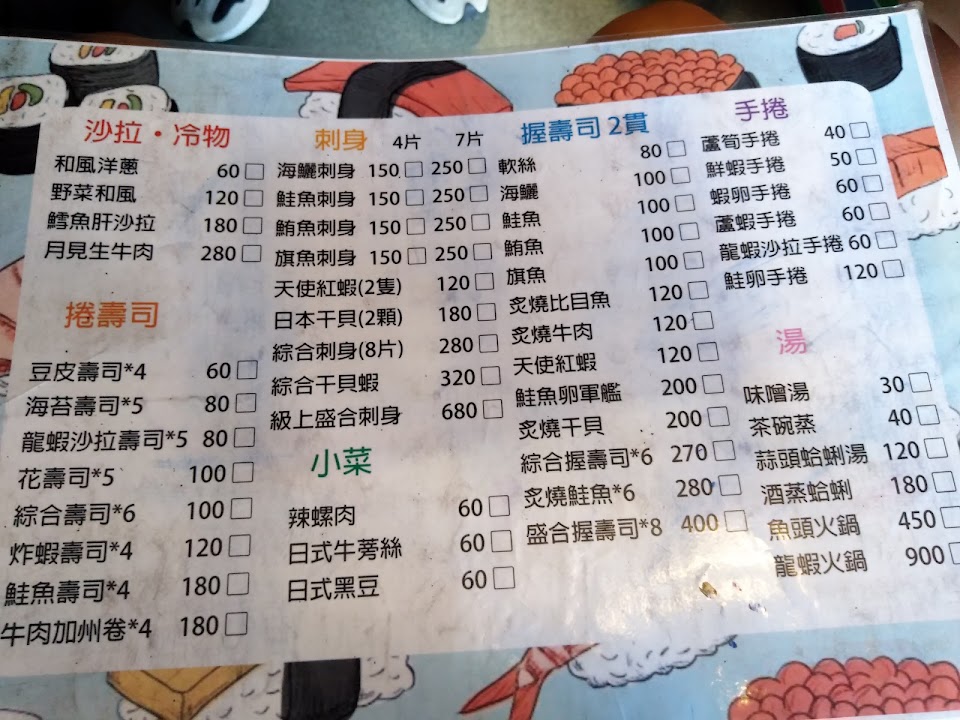 沙拉・冷物
和風洋蔥 60
野菜和風 120
鱈魚肝沙拉 180
月見生牛肉 280
捲壽司
豆皮壽司*4 60
海苔壽司*5 80
龍蝦沙拉壽司*5 80
花壽司*5 100
綜合壽司*6 100
炸蝦壽司*4 120
鮭魚壽司*4 180
牛肉加州卷*4 180
刺身 4片 7片
海鱺刺身 150 250
鮭魚刺身 150 250
鮪魚刺身 150 250
旗魚刺身 150 250
天使紅蝦(2隻) 120
日本干貝(2顆) 180
綜合刺身(8片) 280
綜合干貝蝦 320
級上盛合刺身 680
小菜
辣螺肉 60
日式牛蒡絲 60
日式黑豆 60
握壽司 2貫
軟絲 80
海鱺 100
鮭魚 100
鮪魚 100
旗魚 100
炙燒比目魚 120
炙燒牛肉 120
天使紅蝦 120
鮭魚卵軍艦 200
炙燒干貝 200
綜合握壽司*6 270
炙燒鮭魚*6 280
盛合握壽司*8 400
手捲
蘆筍手捲 40
鮮蝦手捲 50
蝦卵手捲 60
蘆蝦手捲 60
龍蝦沙拉手捲 60
鮭卵手捲 120
湯
味噌湯 30
茶碗蒸 40
蒜頭蛤蜊湯 120
酒蒸蛤蜊 180
魚頭火鍋 450
龍蝦火鍋 900